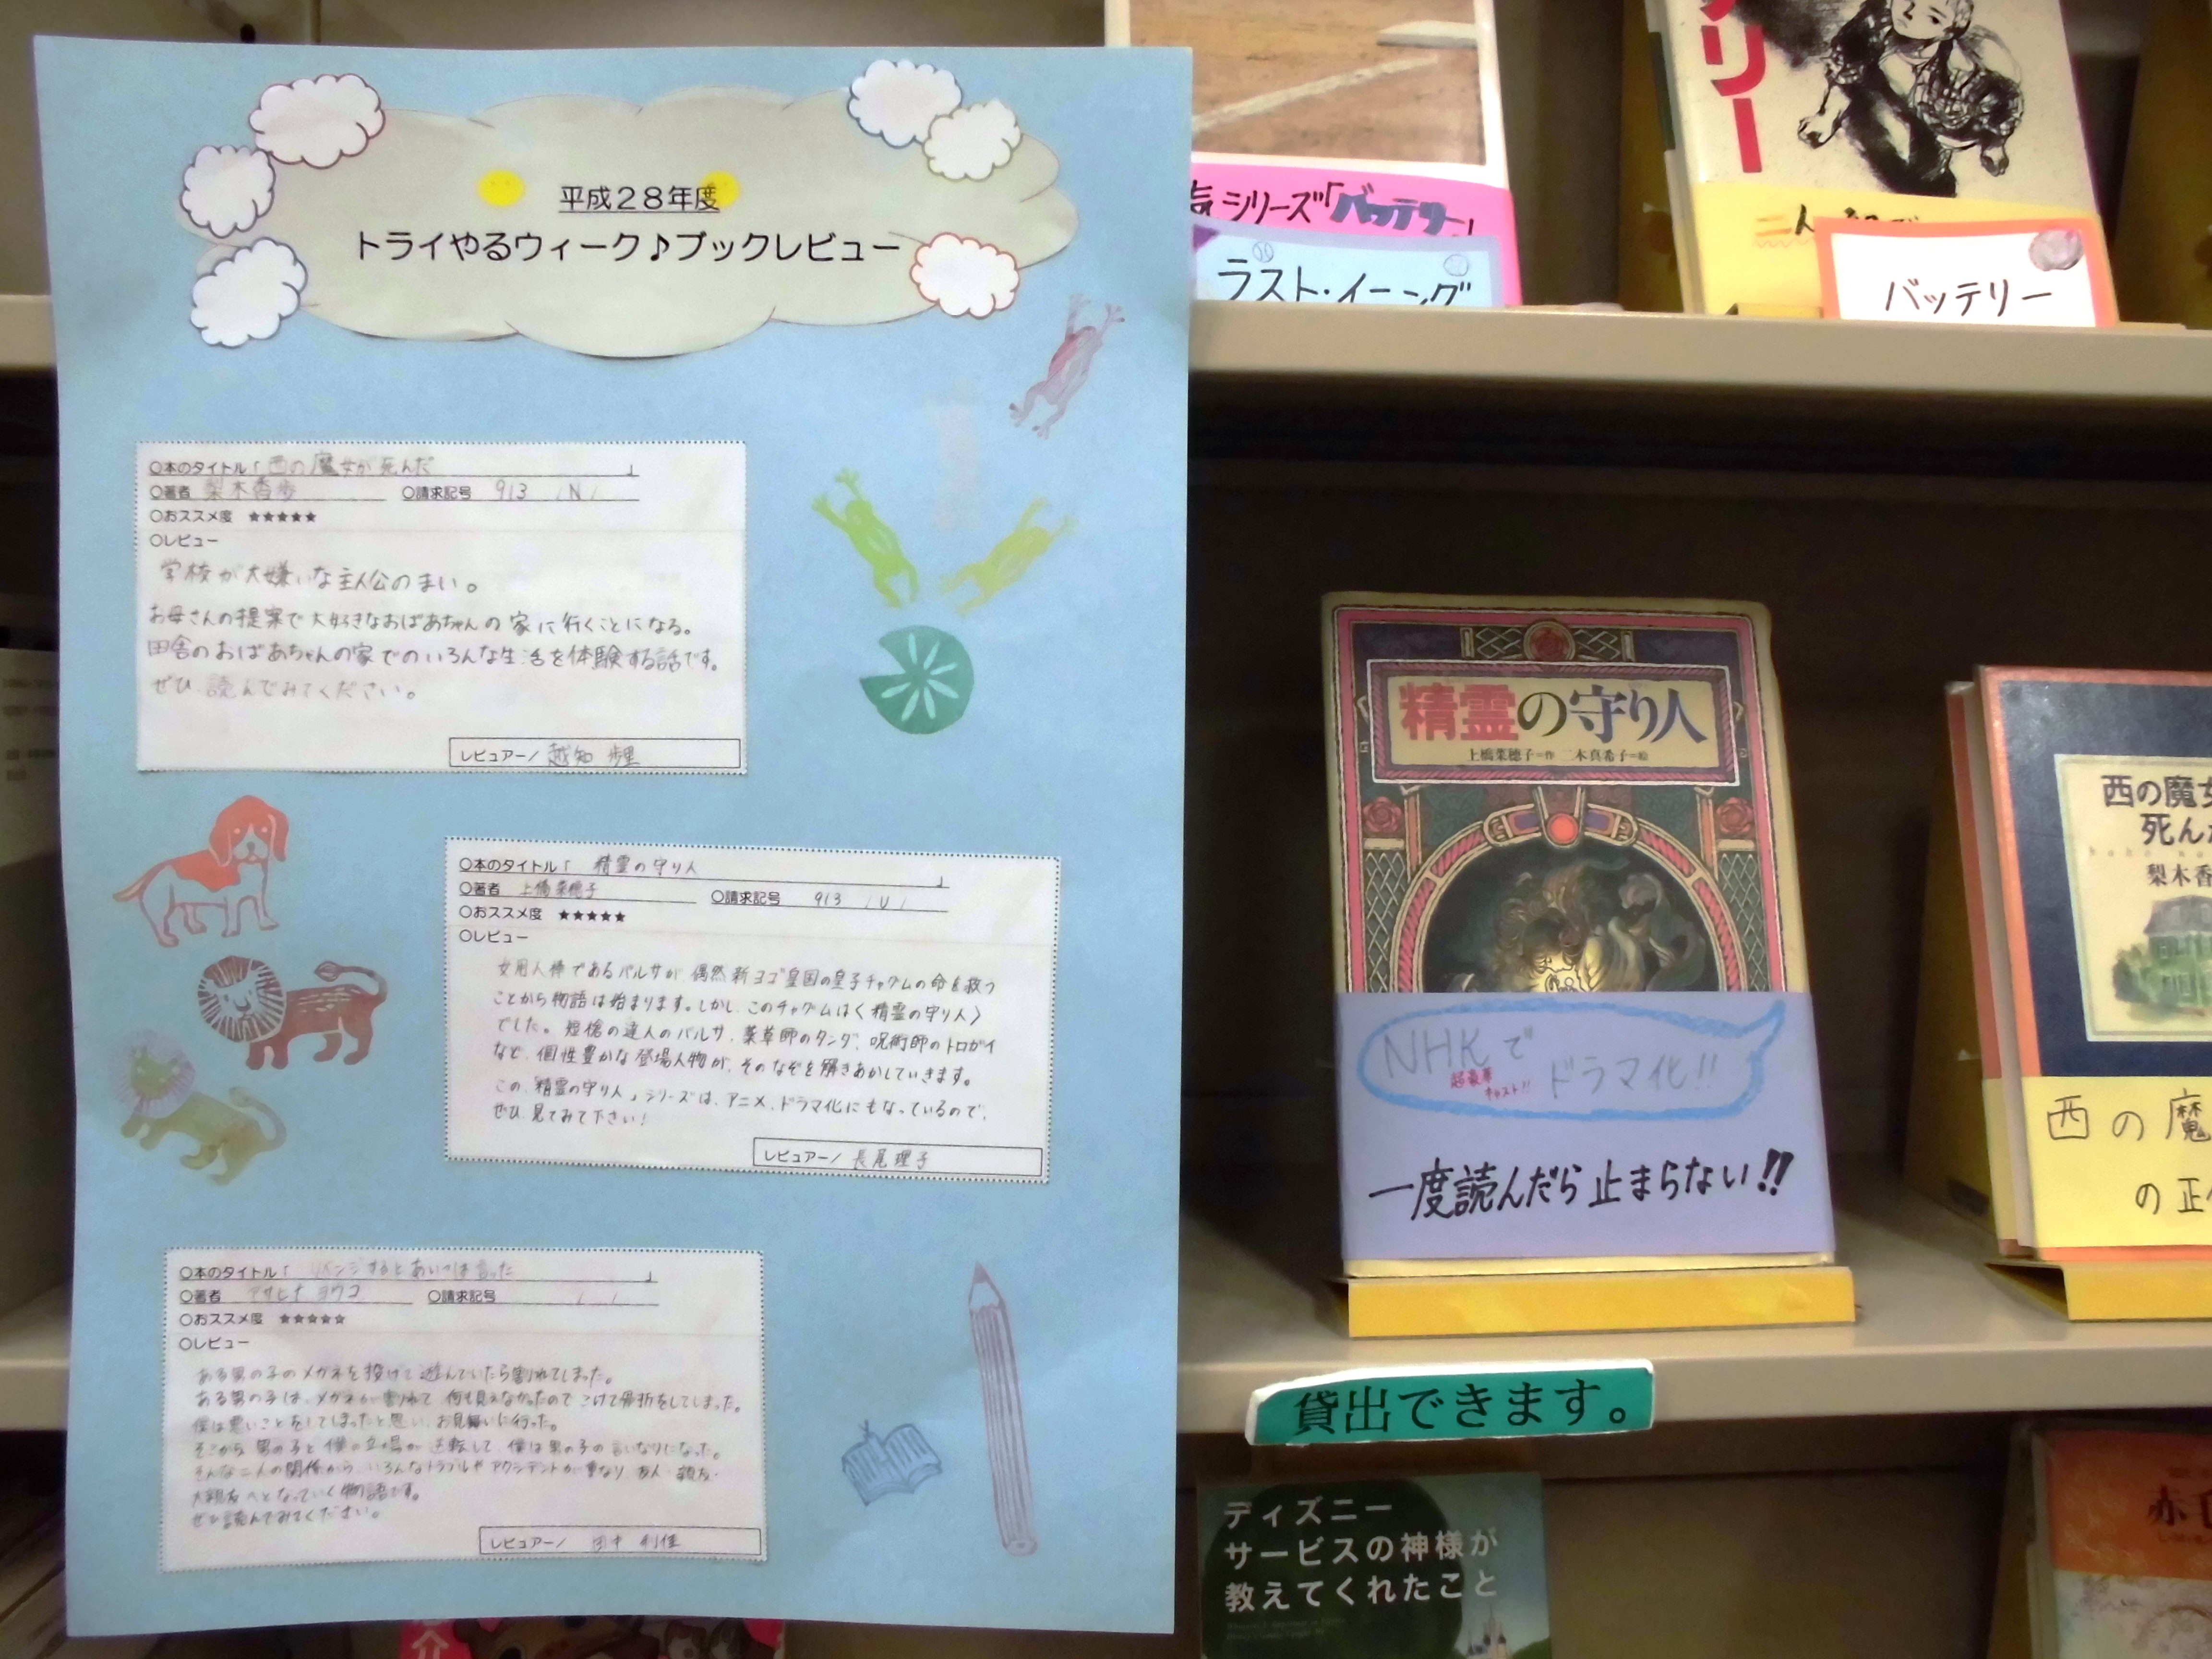 平成28年度
トライやるウィーク♪ブックレビュー
○本のタイトル「西の魔女が死んだ」
○著者 梨木香歩 ○請求記号 913 /N/
○おススメ度 ★★★★★
○レビュー
学校が大嫌いな主人公のまい。
お母さんの提案で大好きなおばあちゃんの家に行くことになる。
田舎のおばあちゃんの家でのいろんな生活を体験する話です。
ぜひ、読んでみてください。
レビュアー/越知 歩里
○本のタイトル「精霊の守り人」
○著者 上橋菜穂子 ○請求記号 913 /U/
○おススメ度 ★★★★★
○レビュー
女用人棒であるバルサが、偶然新ヨゴ皇国の皇子チャグムの命を救う
ことから物語は始まります。しかし、このチャグムは〈精霊の守り人〉
でした。短槍の達人のバルサ、薬草師のタンダ、呪術師のトロガイ
など、個性豊かな登場人物が、そのなぞを解きあかしていきます。
この、「精霊の守り人」シリーズは、アニメ、ドラマ化にもなっているので、
ぜひ、見てみて下さい!
レビュアー/長尾理子
○本のタイトル「リベンジするとあいつは言った」
○著者 アサヒナ ヨウコ ○請求記号 / /
○おススメ度 ★★★★★
○レビュー
ある男の子のメガネを投げて遊んでいたら割れてしまった。
ある男の子は、メガネが割れて、何も見えなかったのでこけて骨折をしてしまった。
僕は悪いことをしてしまったと思い、お見舞いに行った。
そこから男の子と僕の立場が逆転して、僕は男の子の言いなりになった。
そんな二人の関係から、いろんなトラブルやアクシデントが重なり、友人、親友、
大親友へとなっていく物語です。
ぜひ読んでみてください。
レビュアー/
シリーズ「バッテリー」
ラスト・イニング
リー
バッテリー
精霊の守り人
上橋菜穂子=作 二木真希子=絵
NHKで
超豪華
キャスト!!
ドラマ化!!
一度読んだら止まらない!!
西の魔女
死んだ
梨木香
西の魔
の正
貸出できます。
ディズニー
サービスの神様が
教えてくれたこと
赤
介